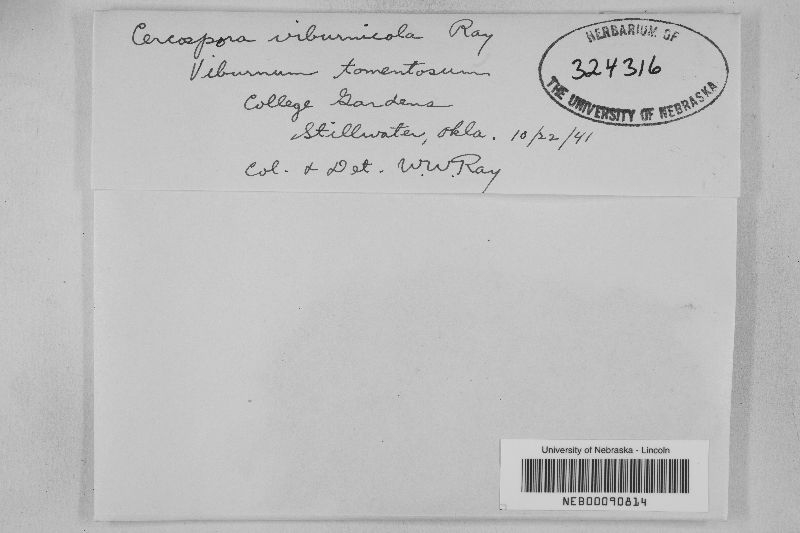 Cercospora viburnicola Ray
Viburnum tomentosum
College Gardens
Stillwater, Okla. 10/22/41
Col. & Det. W.W. Ray
HERBARIUM OF
324316
THE UNIVERSITY OF NEBRASKA
University of Nebraska - Lincoln
NEB00090814